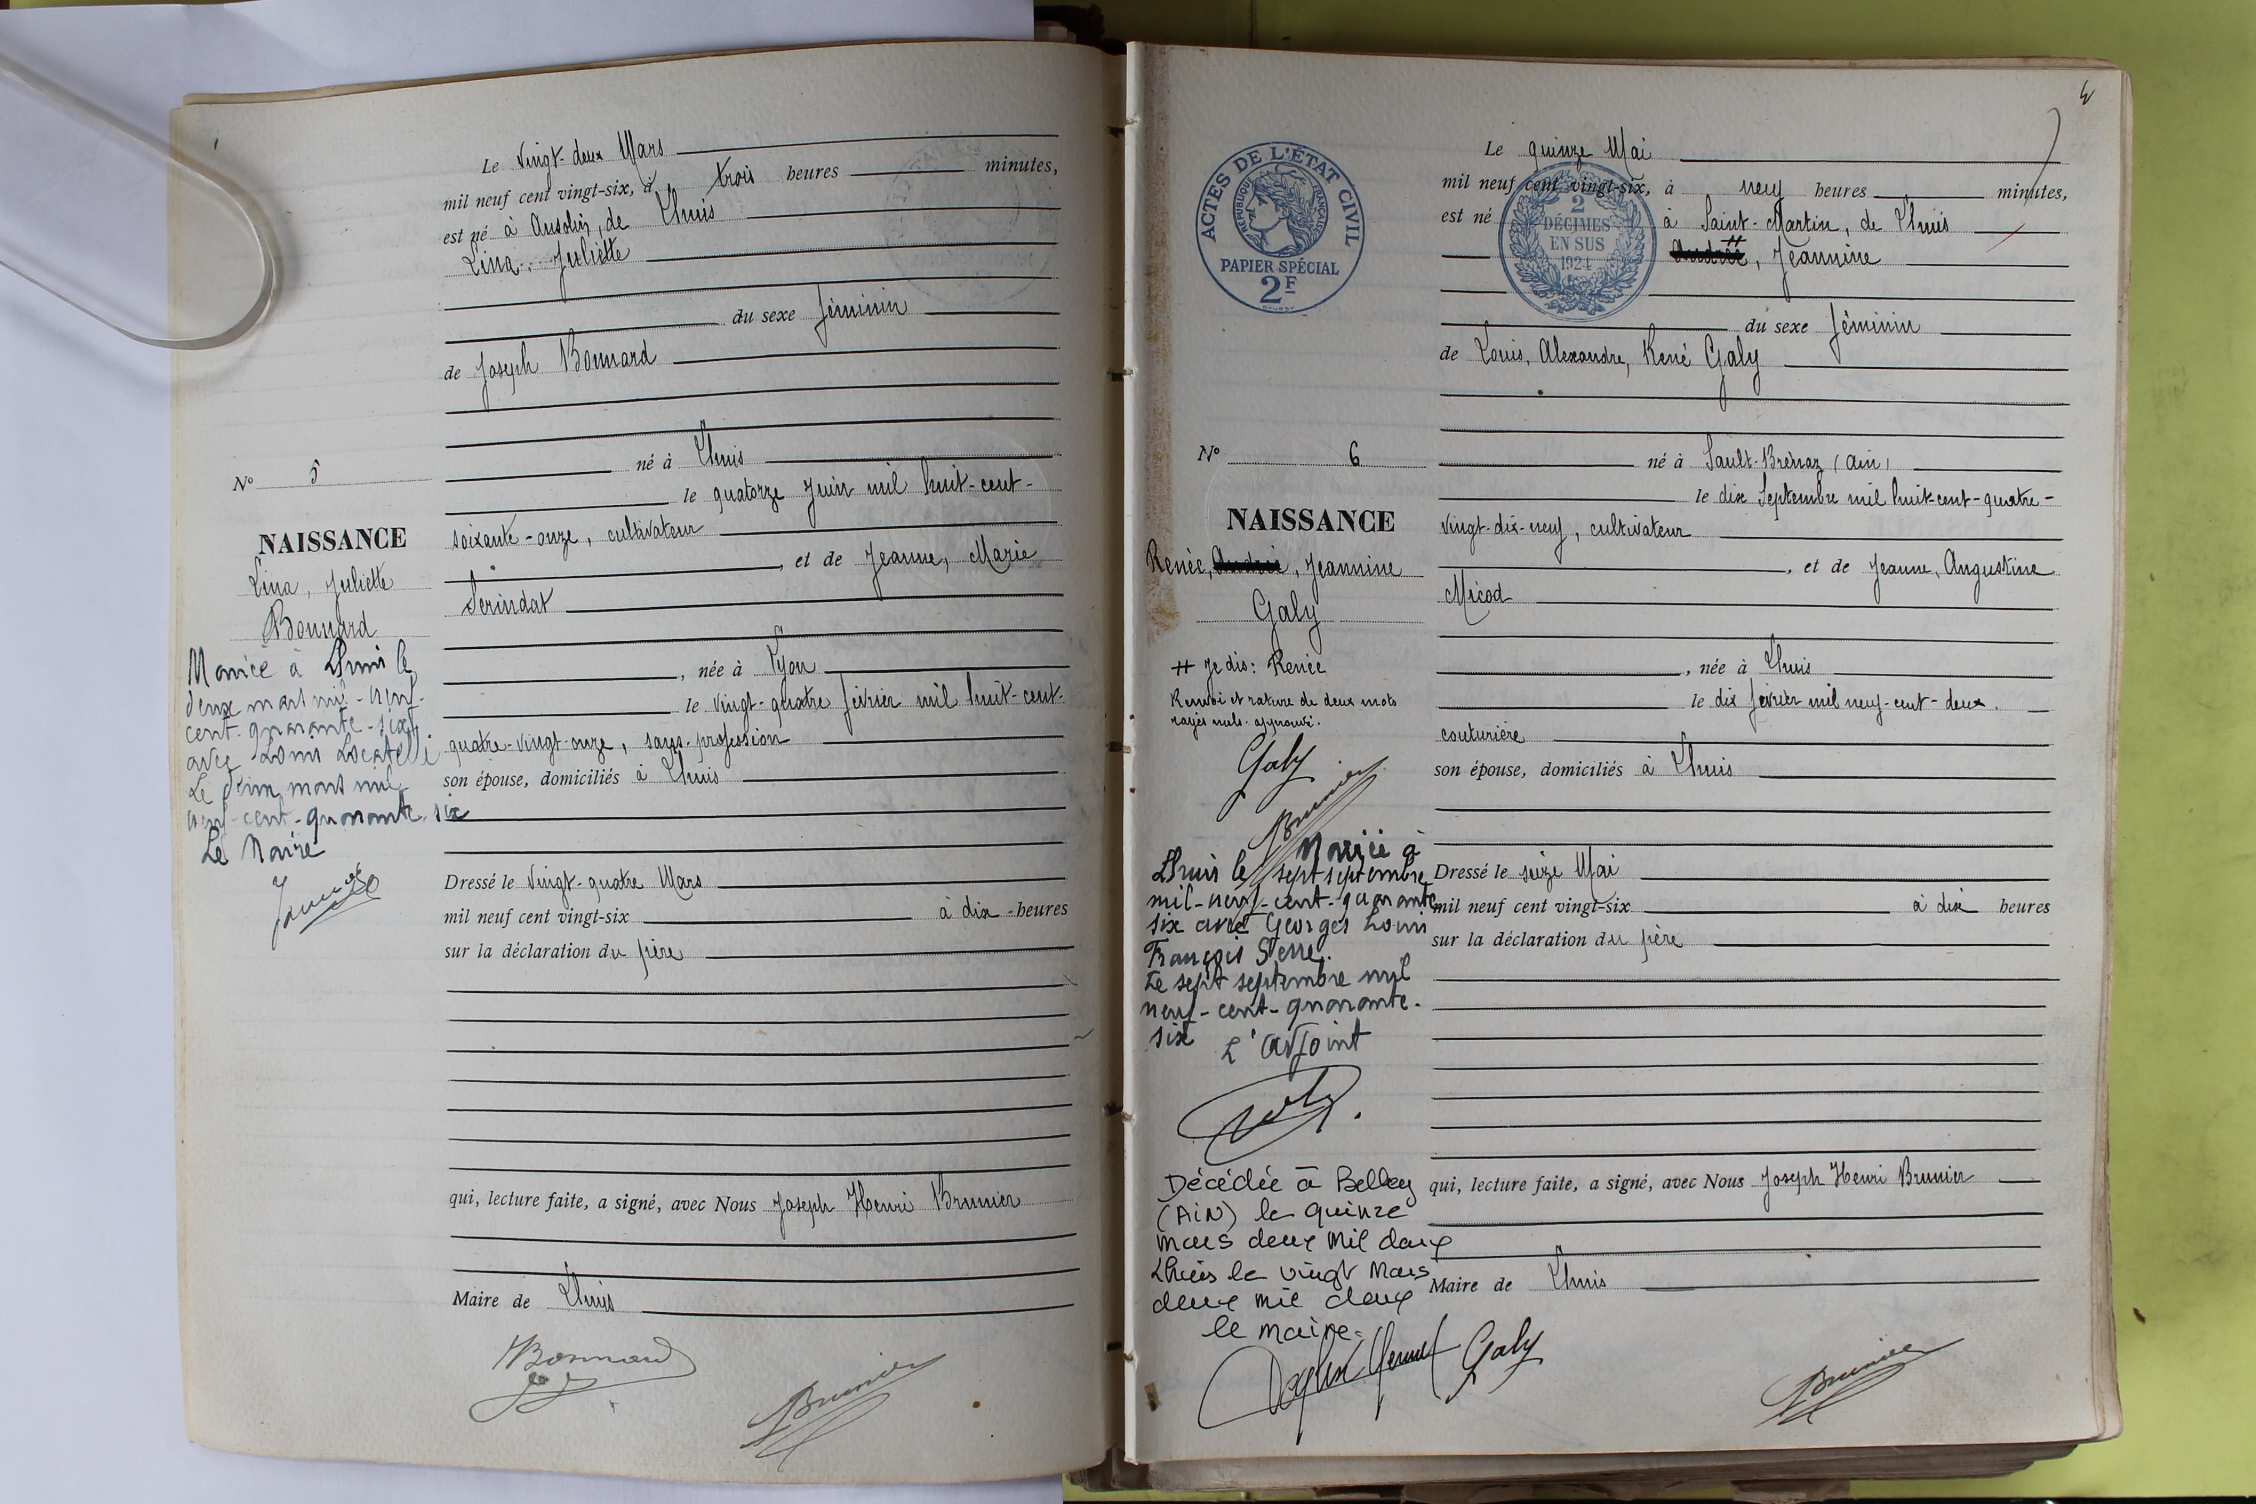 Le vingt-deux Mars
mil neuf cent vingt-six, à trois heures minutes,
est né à Ansolin, de Lhuis
Lina, Juliette
du sexe féminin
de Joseph Bonnard
né à Lhuis
le quatorze Juin mil huit-cent-
soixante-onze, cultivateur
, et de Jeanne, Marie
Serindat
, née à Lyon
le vingt-quatre février mil huit-cent-
quatre-vingt-onze, sans profession
son épouse, domiciliés à Lhuis
Dressé le vingt-quatre Mars
mil neuf cent vingt-six à dix heures
sur la déclaration du père
qui, lecture faite, a signé, avec Nous Joseph Henri Brunier
Maire de Lhuis
Bonnard
Brunier
N° 5
NAISSANCE
Lina, Juliette
Bonnard
Mariée à Lhuis le
deux mars mil-neuf-
cent-quarante-six
avec Louis Locatelli
Le deux mars mil
neuf-cent-quarante-six
Le Maire
4
ACTES DE L'ÉTAT CIVIL
RÉPUBLIQUE FRANÇAISE
PAPIER SPÉCIAL
2F
2
DÉCIMES
EN SUS
1924
Le quinze Mai
mil neuf cent vingt-six, à neuf heures minutes,
est né à Saint-Martin, de Lhuis
Andrée, Jeannine
du sexe féminin
de Louis, Alexandre, René Galy
né à Sault-Brénaz (Ain)
le dix Septembre mil huit-cent-quatre-
vingt-dix-neuf, cultivateur
, et de Jeanne, Augustine
Micod
, née à Lhuis
le dix février mil neuf-cent-deux.
couturière
son épouse, domiciliés à Lhuis
Dressé le seize Mai
mil neuf cent vingt-six à dix heures
sur la déclaration du père
qui, lecture faite, a signé, avec Nous Joseph Henri Brunier
Maire de Lhuis
Galy
Brunier
N° 6
NAISSANCE
Renée, Andrée, Jeannine
Galy
# Je dis: Renée
Renvoi et rature de deux mots
rayés nuls. approuvé.
Galy
Brunier
Mariée à
Lhuis le sept septembre
mil-neuf-cent-quarante
six avec Georges Louis
François Serre.
Le sept septembre mil
neuf-cent-quarante-
six
L'adjoint
Décédée à Belley
(AIN) le quinze
mars deux mil deux
Lhuis le vingt Mars
deux mil deux
le maire.